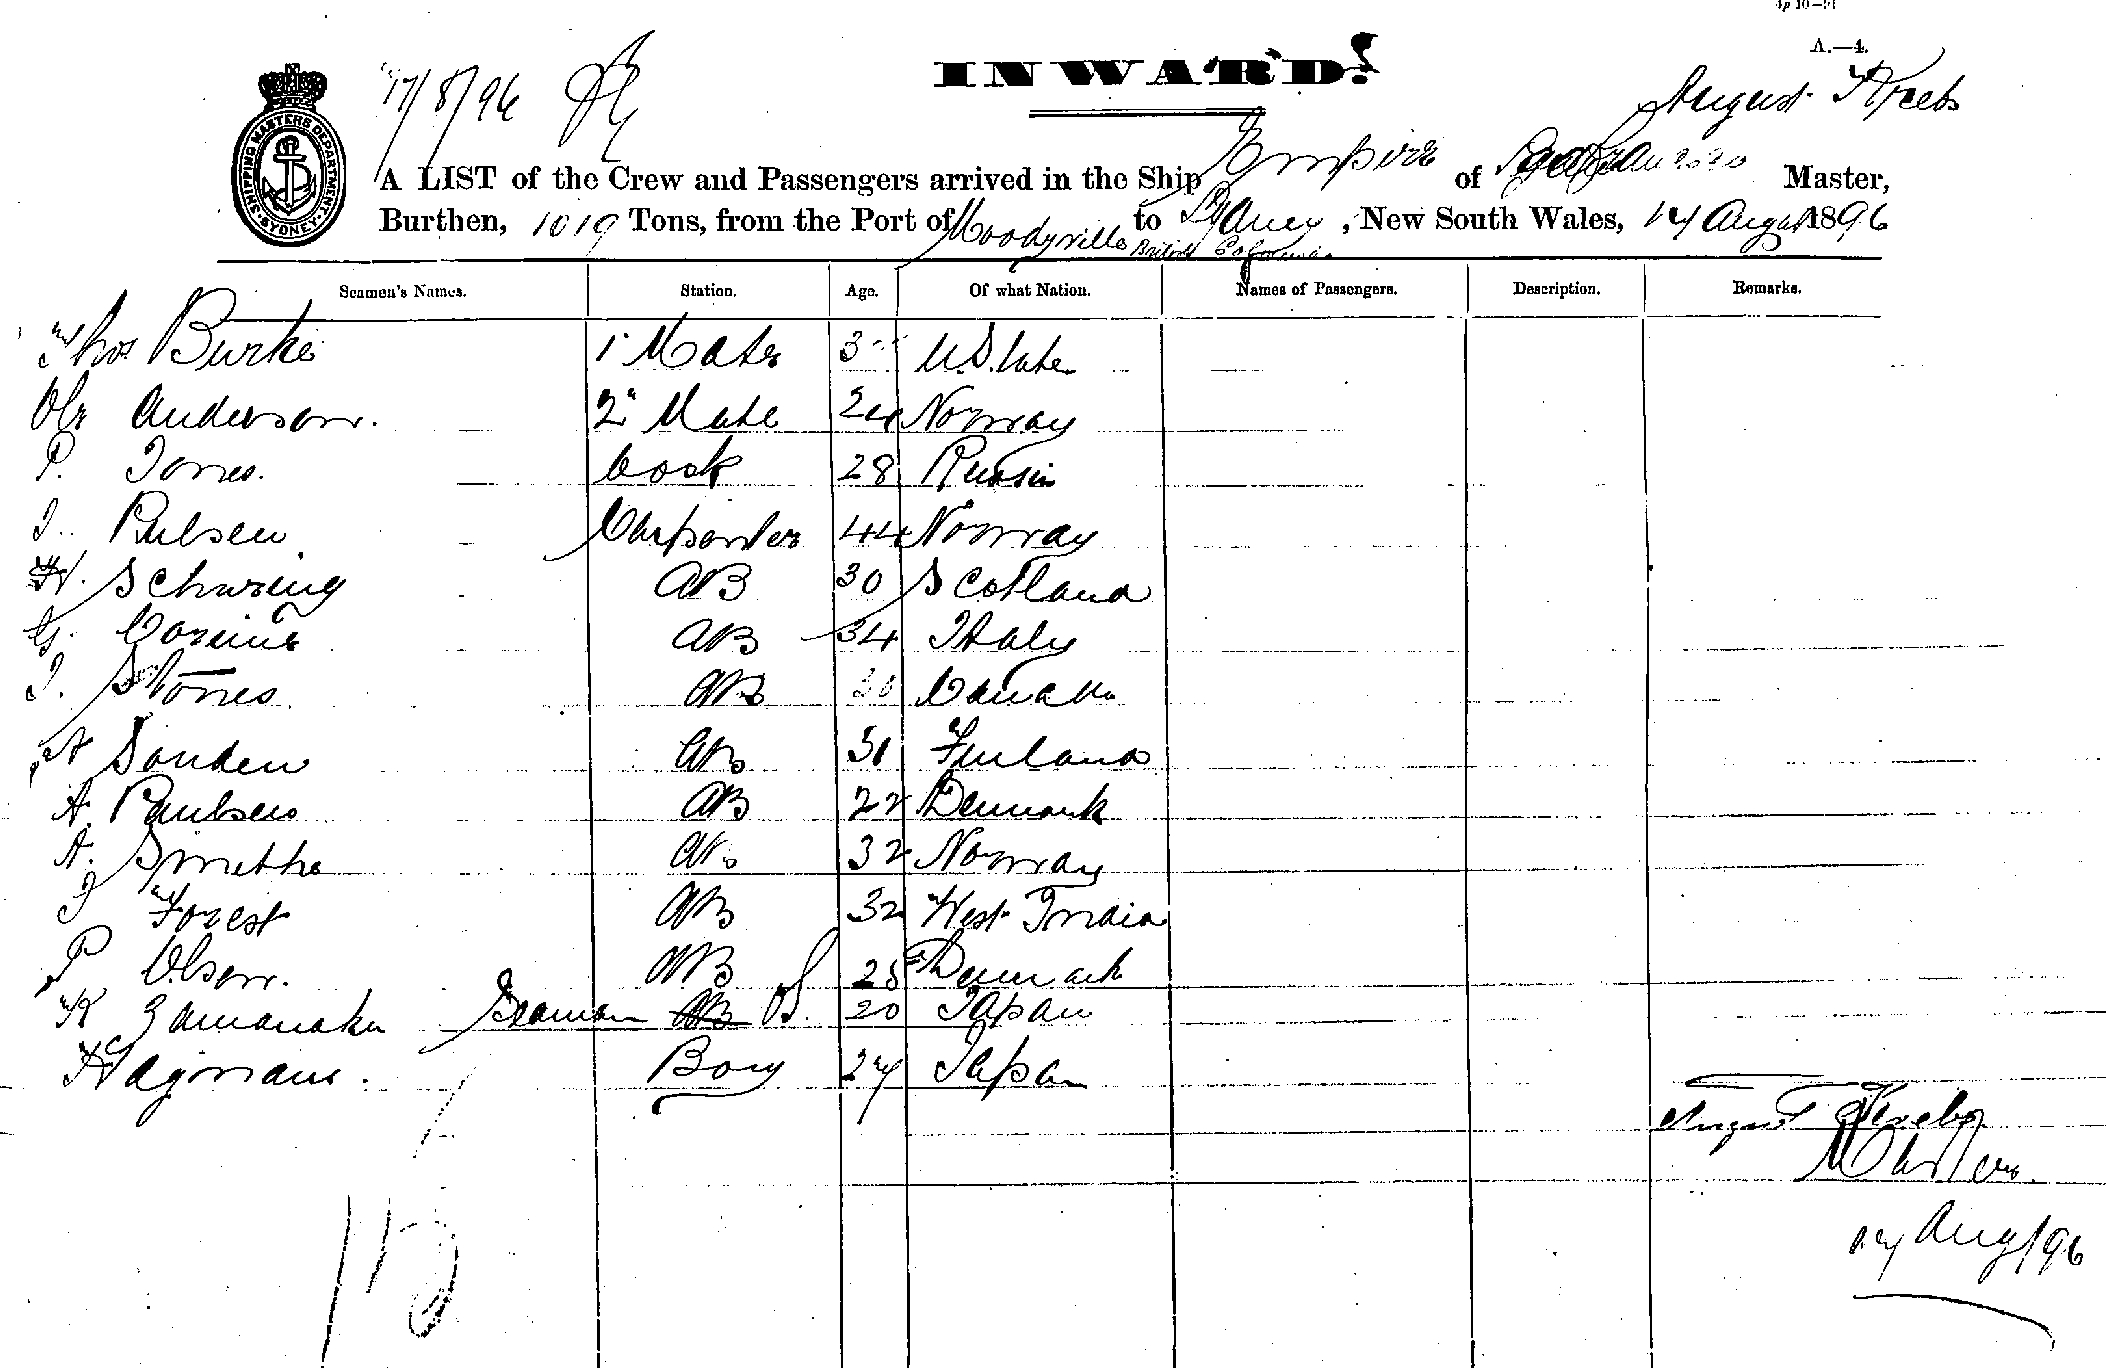 4p 10—91
A.—4.
17/8/96
INWARD.
August Krebs
SHIPPING MASTERS DEPARTMENT. SYDNEY
A LIST of the Crew and Passengers arrived in the Ship Empire of San Francisco Master,
Burthen, 1019 Tons, from the Port of Moodyville British Columbia to Sydney, New South Wales, 14 August 1896
Seamen's Names. Station. Age. Of what Nation. Names of Passengers. Description. Remarks.
Thos Burke 1" Mate 3 U. State
Ole Anderson. 2" Mate 24 Norway
P. Jones. Cook 28 Russia
J. Carpenter 44 Norway
H. Schwering AB 30 Scotland
G. AB 34 Italy
J. Stones AB 30 Canada
A Sanden AB 31 Finland
A. Paulsen AB 22 Denmark
A. Smith AB 32 Norway
J Forest AB 32 West India
P Olsen. AB 25 Denmark
K Yamanaka Seaman AB OS. 20 Japan
Boy 24 Japan
August Krebs
Master.
14 Aug/96